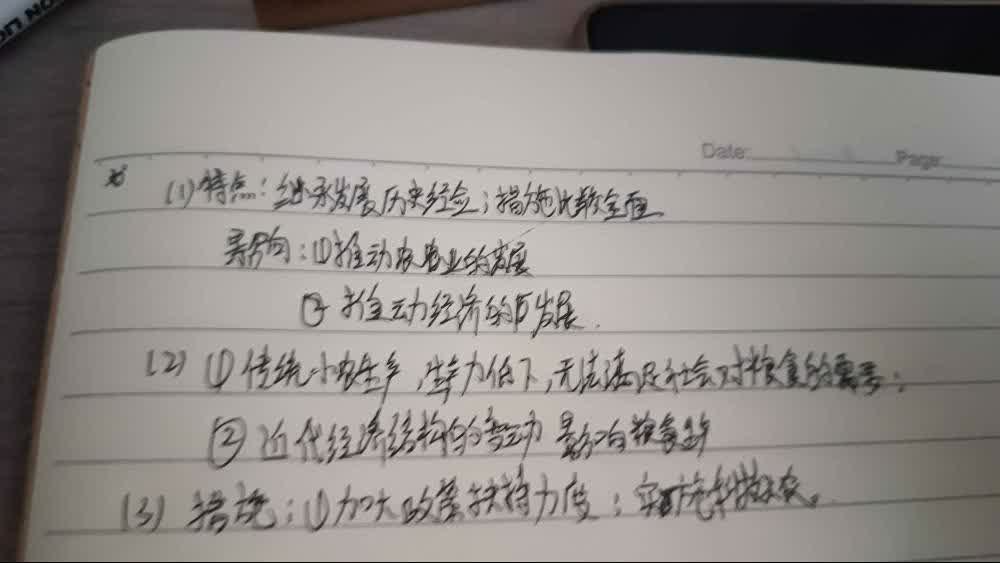 Date:
Page:
(1) 特点：继承发展历史经验；措施比较全面
影响：①推动农业的发展
② 推动经济的发展.
(2) ①传统小农生产，生产力低下，无法满足社会对粮食的需求；
② 近代经济结构的变动 影响粮食
(3) 措施：①加大政策扶持力度；实施科技兴农。